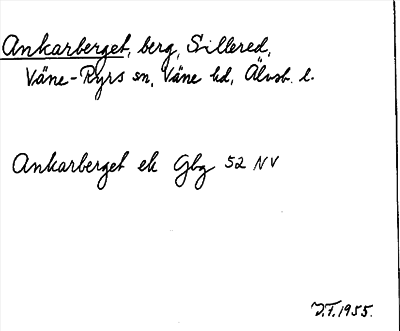 Ankarberget, berg, Sillered,
Väne-Ryrs sn, Väne hd, Älvsb. l.
Ankarberget ek Gbg 52 NV
D.F. 1955.